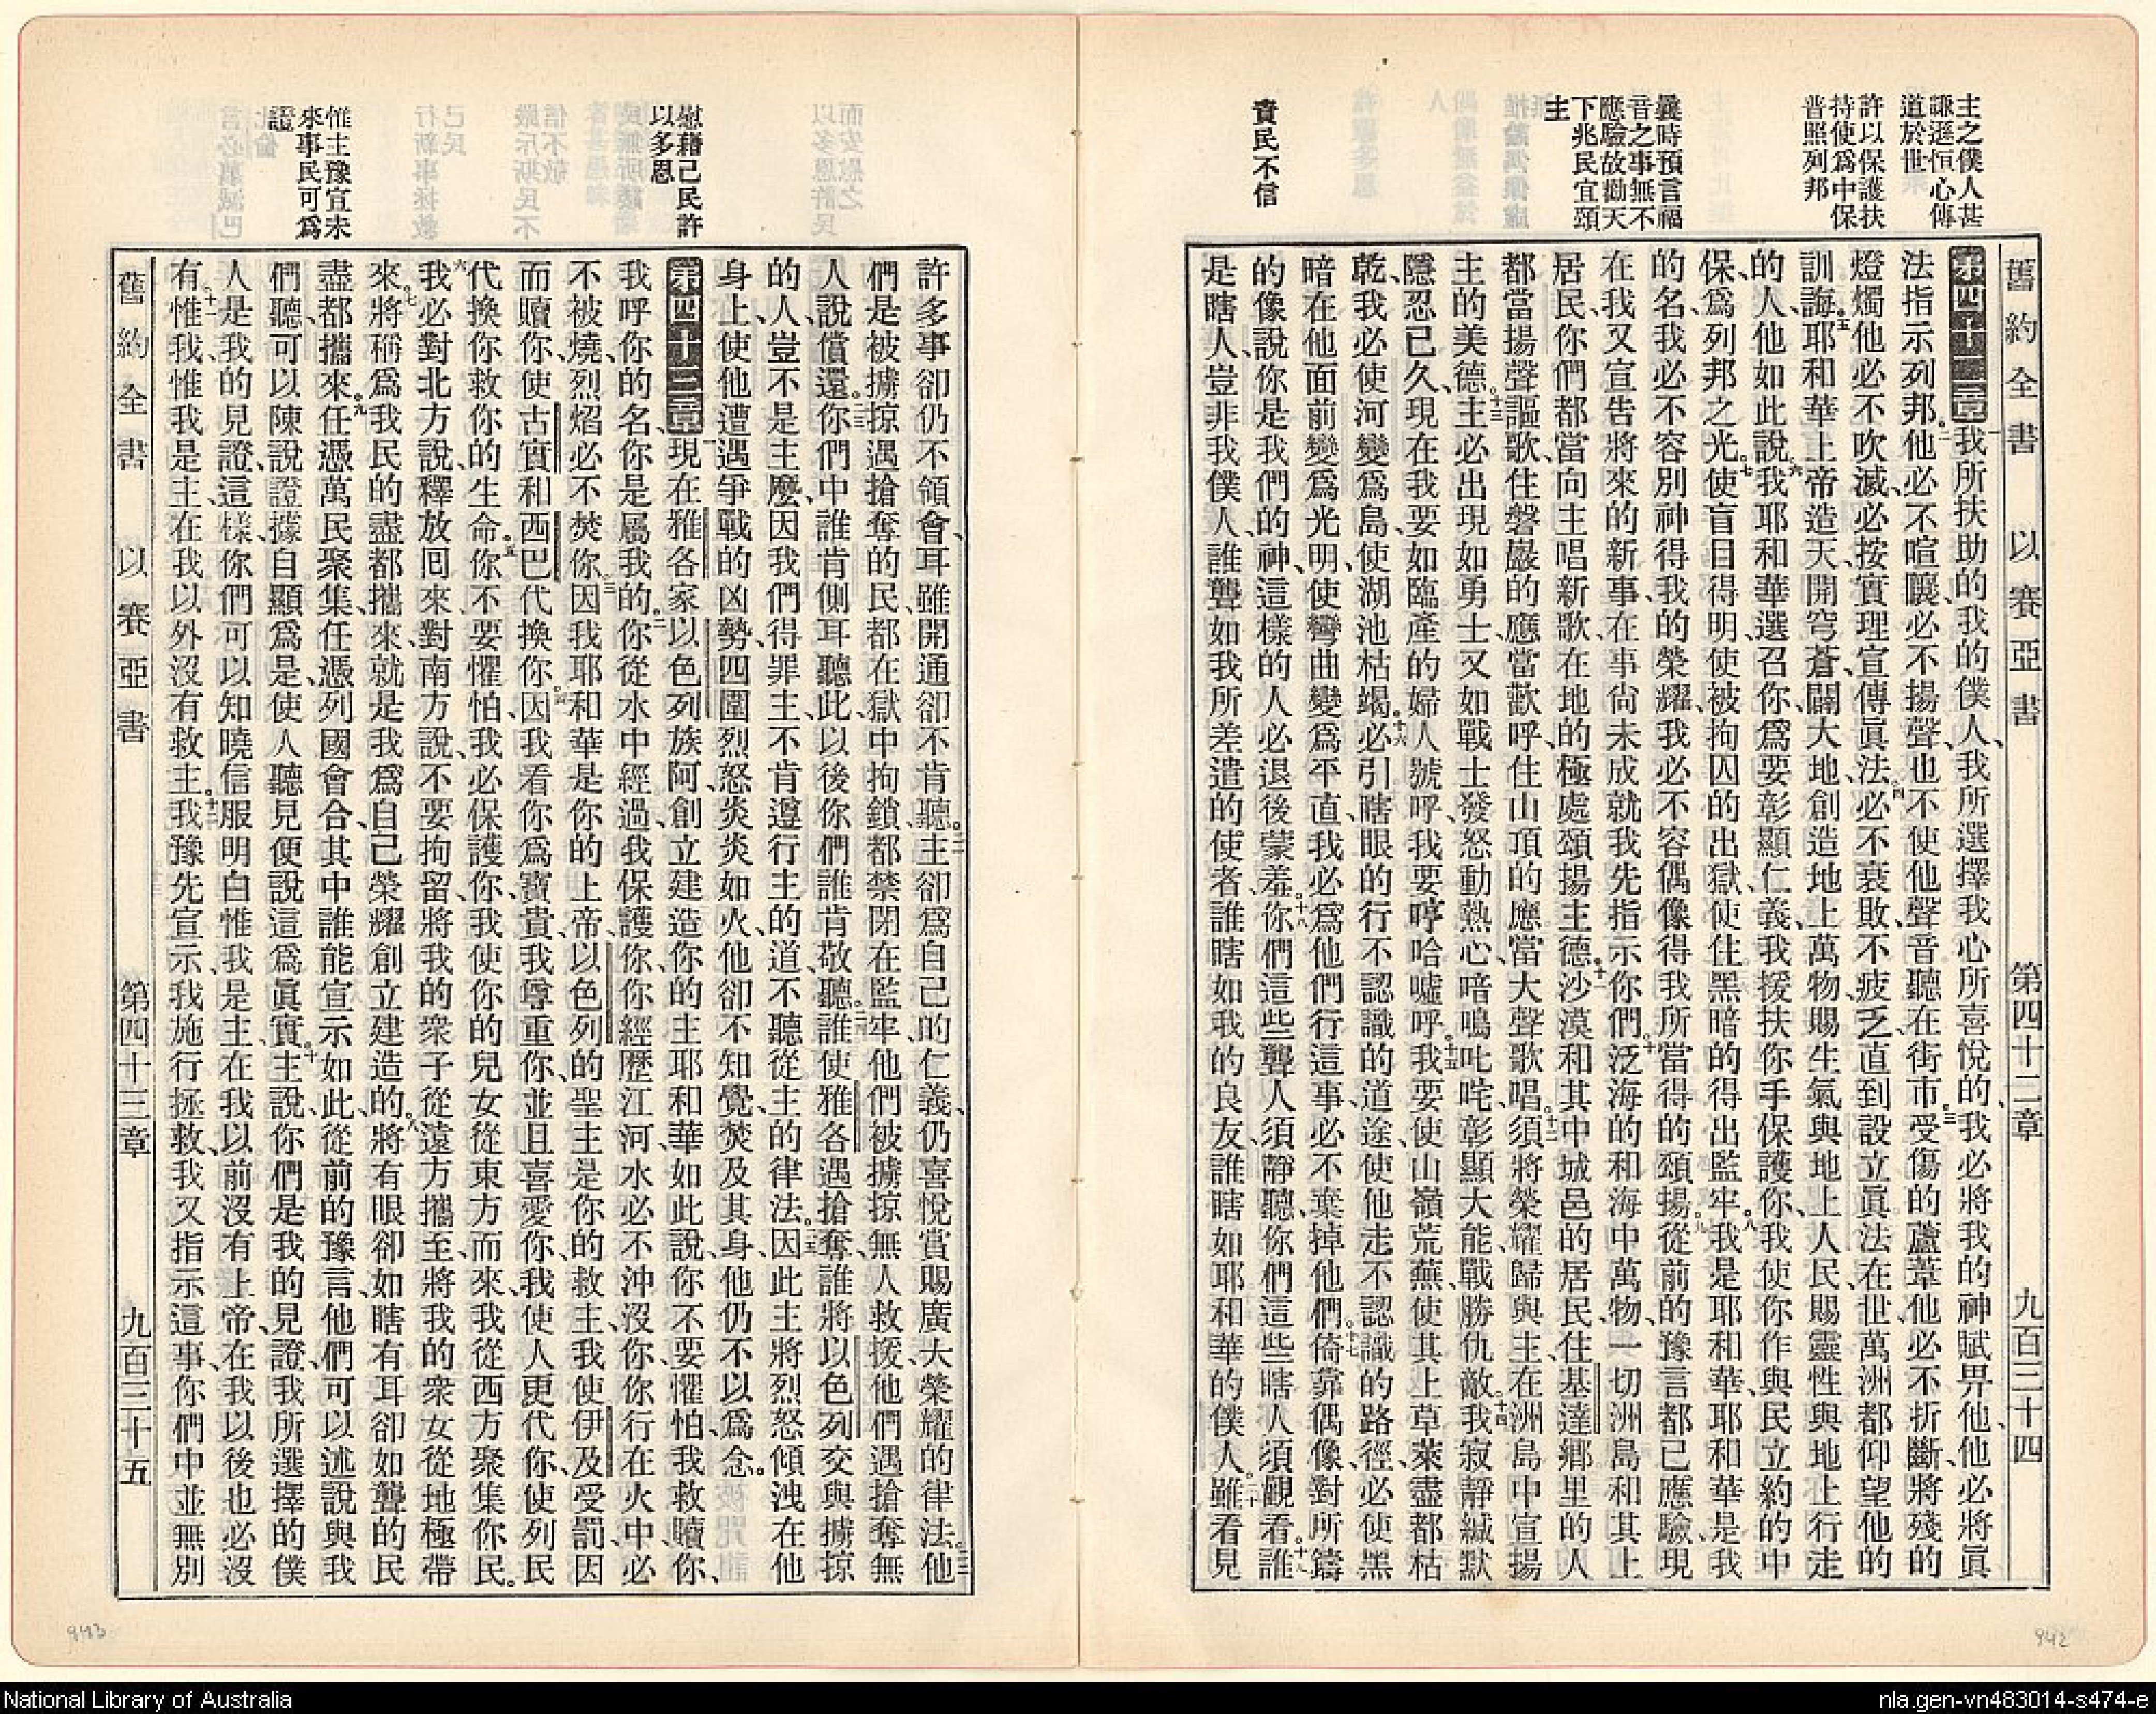 主之僕人甚
謙遜恒心傳
道於世
許以保護扶
持使爲中保
普照列邦
曩時預言福
音之事無不
應驗故勸天
下兆民宜頌
主
責民不信
舊約全書 以賽亞書 第四十二章 九百三十四
第四十二章 一我所扶助的我的僕人、我所選擇我心所喜悅的、我必將我的神賦畀他、他必將眞
法指示列邦。二他必不喧嚷、必不揚聲、也不使他聲音聽在街市。三受傷的蘆葦、他必不折斷、將殘的
燈燭他必不吹滅、必按實理宣傳眞法。四必不衰敗、不疲乏、直到設立眞法在世、萬洲都仰望他的
訓誨。五耶和華上帝造天、開穹蒼、闢大地、創造地上萬物、賜生氣與地上人民、賜靈性與地上行走
的人、他如此說、六我耶和華選召你、爲要彰顯仁義、我援扶你手、保護你、我使你作與民立約的中
保、爲列邦之光。七使盲目得明、使被拘囚的出獄、使住黑暗的得出監牢。八我是耶和華、耶和華是我
的名、我必不容別神得我的榮耀、我必不容偶像得我所當得的頌揚。九從前的豫言都已應驗、現
在我又宣告將來的新事、在事尙未成就、我先指示你們。十泛海的和海中萬物、一切洲島和其上
居民、你們都當向主唱新歌、在地的極處頌揚主德。十一沙漠和其中城邑的居民、住基達鄉里的人
都當揚聲謳歌、住磐巖的應當歡呼、住山頂的應當大聲歌唱。十二須將榮耀歸與主、在洲島中宣揚
主的美德。十三主必出現如勇士、又如戰士發怒、動熱心、喑嗚叱咤、彰顯大能、戰勝仇敵。十四我寂靜緘默
隱忍已久、現在我要如臨產的婦人號呼、我要哼哈噓呼。十五我要使山嶺荒蕪、使其上草萊盡都枯
乾、我必使河變爲島、使湖池枯竭。十六必引瞎眼的行不認識的道途、使他走不認識的路徑、必使黑
暗在他面前變爲光明、使彎曲變爲平直、我必爲他們行這事、必不棄掉他們。十七倚靠偶像、對所鑄
的像說你是我們的神、這樣的人必退後蒙羞。十八你們這些聾人、須靜聽、你們這些瞎人須觀看。十九誰
是瞎人、豈非我僕人、誰聾如我所差遣的使者、誰瞎如我的良友、誰瞎如耶和華的僕人。二十雖看見
而安慰之
以多恩許民
慰藉己民許
以多恩
惟主豫宣未
來事民可爲
證
許多事卻仍不領會、耳雖開通卻不肯聽。二一主卻爲自己的仁義、仍喜悅賞賜廣大榮耀的律法。二二他
們是被擄掠遇搶奪的民、都在獄中拘鎖、都禁閉在監牢、他們被擄掠無人救援、他們遇搶奪無
人說償還。二三你們中誰肯側耳聽此、以後你們誰肯敬聽。二四誰使雅各遇搶奪、誰將以色列交與擄掠
的人、豈不是主麼、因我們得罪主、不肯遵行主的道、不聽從主的律法。二五因此主將烈怒傾洩在他
身上、使他遭遇爭戰的凶勢、四圍烈怒炎炎如火、他卻不知覺、焚及其身、他仍不以爲念。
第四十三章 一現在雅各家以色列族阿、創立建造你的主耶和華如此說、你不要懼怕、我救贖你、
我呼你的名、你是屬我的。二你從水中經過、我保護你、你經歷江河、水必不沖沒你、你行在火中必
不被燒、烈焰必不焚你。三因我耶和華是你的上帝、以色列的聖主是你的救主、我使伊及受罰、因
而贖你、使古實和西巴代換你。四因我看你爲寶貴、我尊重你、並且喜愛你、我使人更代你、使列民
代換你救你的生命。五你不要懼怕、我必保護你、我使你的兒女從東方而來、我從西方聚集你民。
六我必對北方說、釋放回來、對南方說、不要拘留、將我的衆子從遠方攜至、將我的衆女從地極帶
來。七將稱爲我民的盡都攜來、就是我爲自己榮耀創立建造的。八將有眼卻如瞎、有耳卻如聾的民
盡都攜來。九任憑萬民聚集、任憑列國會合、其中誰能宣示如此、從前的豫言他們可以述說與我
們聽、可以陳說證據自顯爲是、使人聽見便說這爲眞實。十主說、你們是我的見證、我所選擇的僕
人是我的見證、這樣你們可以知曉信服明白惟我是主、在我以前沒有上帝、在我以後也必沒
有。十一惟我惟我是主、在我以外沒有救主。十二我豫先宣示、我施行拯救、我又指示這事、你們中並無別
舊約全書 以賽亞書 第四十三章 九百三十五
943
942
National Library of Australia
nla.gen-vn483014-s474-e